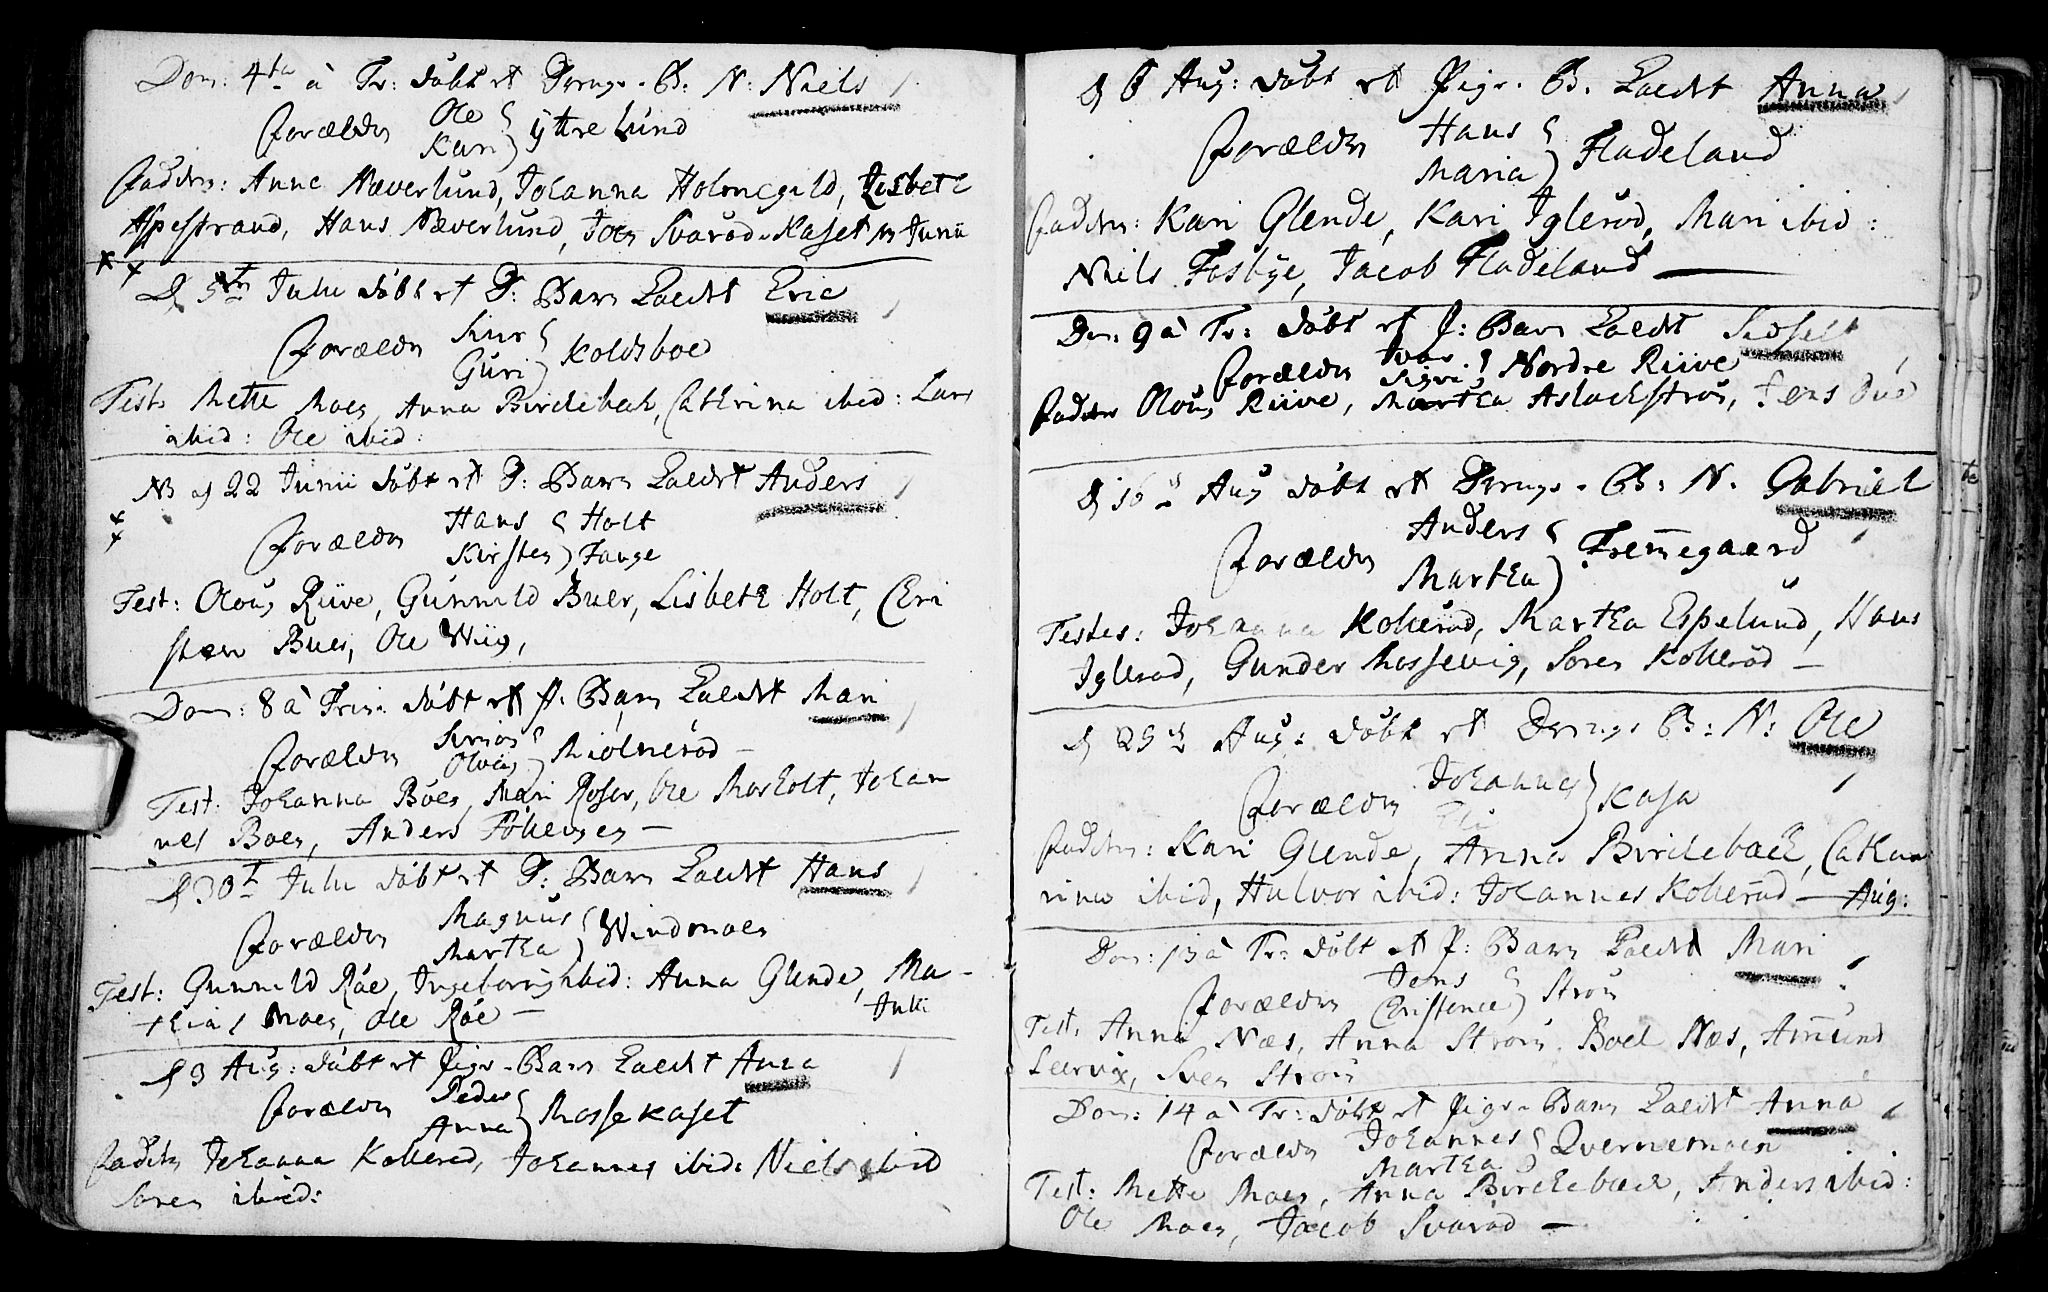 Dom: 4ta à Tr: døbt et Drenge-B: N: Niels
Forældre Ole
Kari } Ytre Lund
Faddere: Anne Næverlund, Johanna Holmegild, Lisbeth
Aspestrand, Hans Næverlund, Joen Svarød-Kaset Junii
D 5te Julii døbt et D: Barn kaldet Eric
Forældre Siur
Guri } Koldsboe
Test: Mette Moen, Anna Birchebæk, Cathrina ibid: Lars
ibid: Ole ibid:
NB d 22 Junii døbt et D: Barn kaldet Anders
Forældre Hans
Kirsten } Holt Tange
Test: Olous Riive, Gunnild Buer, Lisbeth Holt, Chri
sten Buer, Ole Wiig,
Dom: 8 à Trin: døbt et P: Barn kaldet Mari
Forældre
Miølnerød
Test: Johanna Boen, Mari Roser, Ole Marholt, Johan
nes Boen, Anders
D 30t Julii døbt et D: Barn kaldet Hans
Forældre Magnus
Martha } Windmoen
Test: Gunnild Røe, Ingeborg ibid: Anna Glende, Ma-
thias Moen, Ole Røe — Julii
D 3 Aug: døbt et Pige-Barn kaldet Anna
Forældre Peder
Anna } Mossekaset
Faddere Johanna Kollerød, Johannes ibid: Niels ibid
Soren ibid:
D 6 Aug: døbt et Pige-B. kaldet Anna
Forældre Hans
Maria } Fladeland
Faddere: Kari Glende, Kari Iglerød, Mari ibid:
Niels Fosbye, Jacob Fladeland —
Dom: 9 à Tr: døbt et P: Barn kaldet Sidsel
Forældre Iver
Sigri } Nordre Riive
Faddere Olous Riive, Martha Aslackstrøm, Jens
D 16de Aug døbt et Drenge-B: N. Gabriel
Forældre Anders
Martha } Fremegaard
Testes: Johanna Kollerød, Martha Espelund, Hans
Iglerød, Gunder Mossevig, Soren Kollerød —
D 29de Aug: døbt et Drenge B: N: Ole
Forældre Johannes
Kasa
Faddere: Kari Glende, Anna Birchebæch, Catha
rina ibid, Halvor ibid: Johannes Kollerød — Aug:
Dom: 13 à Tr: døbt et P: Barn kaldet Mari
Forældre Jens
Christence } Strøm
Test: Anna Næs, Anna Strøm, Boel Næs, Amund
Leervig, Sven Strøm
Dom: 14 à Tr: døbt et Pige-Barn kaldet Anna
Forældre Johannes
Martha } Qvernemoen
Test: Mette Moen, Anna Birchebæch, Anders ibid:
Ole Moen, Jacob Svarød —